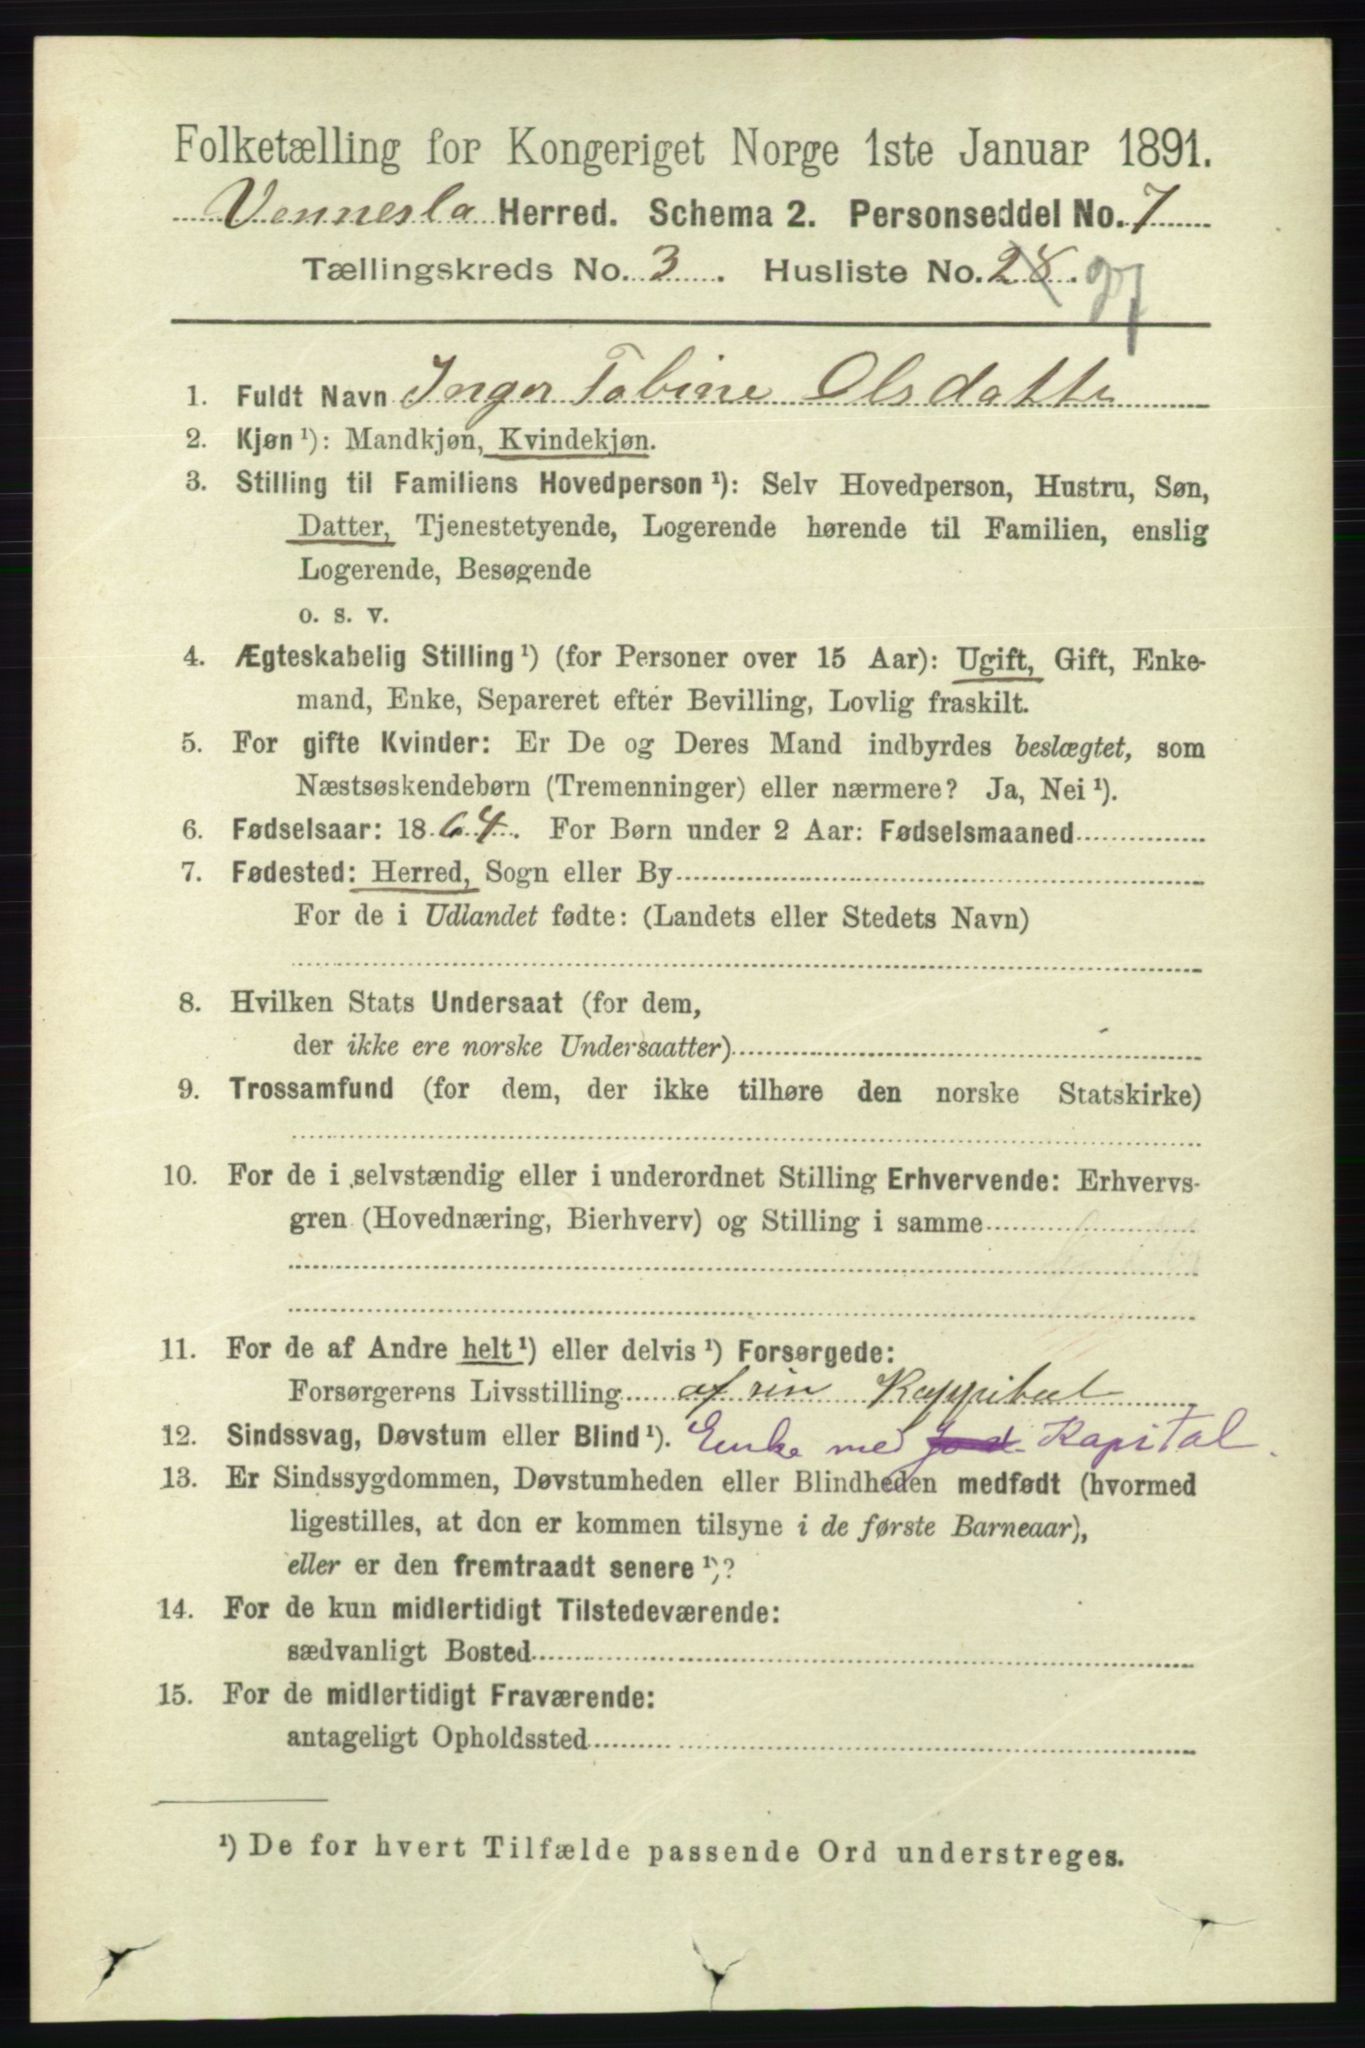 Folketælling for Kongeriget Norge 1ste Januar 1891.
Vennesla Herred. Schema 2. Personseddel No. 7
Tællingskreds No. 3. Husliste No. 28. 27
1. Fuldt Navn Inger Tobine Olsdatte
2. Kjøn ¹): Mandkjøn, Kvindekjøn.
3. Stilling til Familiens Hovedperson ¹): Selv Hovedperson, Hustru, Søn,
Datter, Tjenestetyende, Logerende hørende til Familien, enslig
Logerende, Besøgende
o. s. v.
4. Ægteskabelig Stilling ¹) (for Personer over 15 Aar): Ugift, Gift, Enke-
mand, Enke, Separeret efter Bevilling, Lovlig fraskilt.
5. For gifte Kvinder: Er De og Deres Mand indbyrdes beslægtet, som
Næstsøskendebørn (Tremenninger) eller nærmere? Ja, Nei ¹).
6. Fødselsaar: 1864. For Børn under 2 Aar: Fødselsmaaned
7. Fødested: Herred, Sogn eller By
For de i Udlandet fødte: (Landets eller Stedets Navn)
8. Hvilken Stats Undersaat (for dem,
der ikke ere norske Undersaatter)
9. Trossamfund (for dem, der ikke tilhøre den norske Statskirke)
10. For de i selvstændig eller i underordnet Stilling Erhvervende: Erhvervs-
gren (Hovednæring, Bierhverv) og Stilling i samme
11. For de af Andre helt ¹) eller delvis ¹) Forsørgede:
Forsørgerens Livsstilling af sin Kappital
12. Sindssvag, Døvstum eller Blind ¹). Enke med Kapital.
13. Er Sindssygdommen, Døvstumheden eller Blindheden medfødt (hvormed
ligestilles, at den er kommen tilsyne i de første Barneaar),
eller er den fremtraadt senere ¹)?
14. For de kun midlertidigt Tilstedeværende:
sædvanligt Bosted
15. For de midlertidigt Fraværende:
antageligt Opholdssted
¹) De for hvert Tilfælde passende Ord understreges.